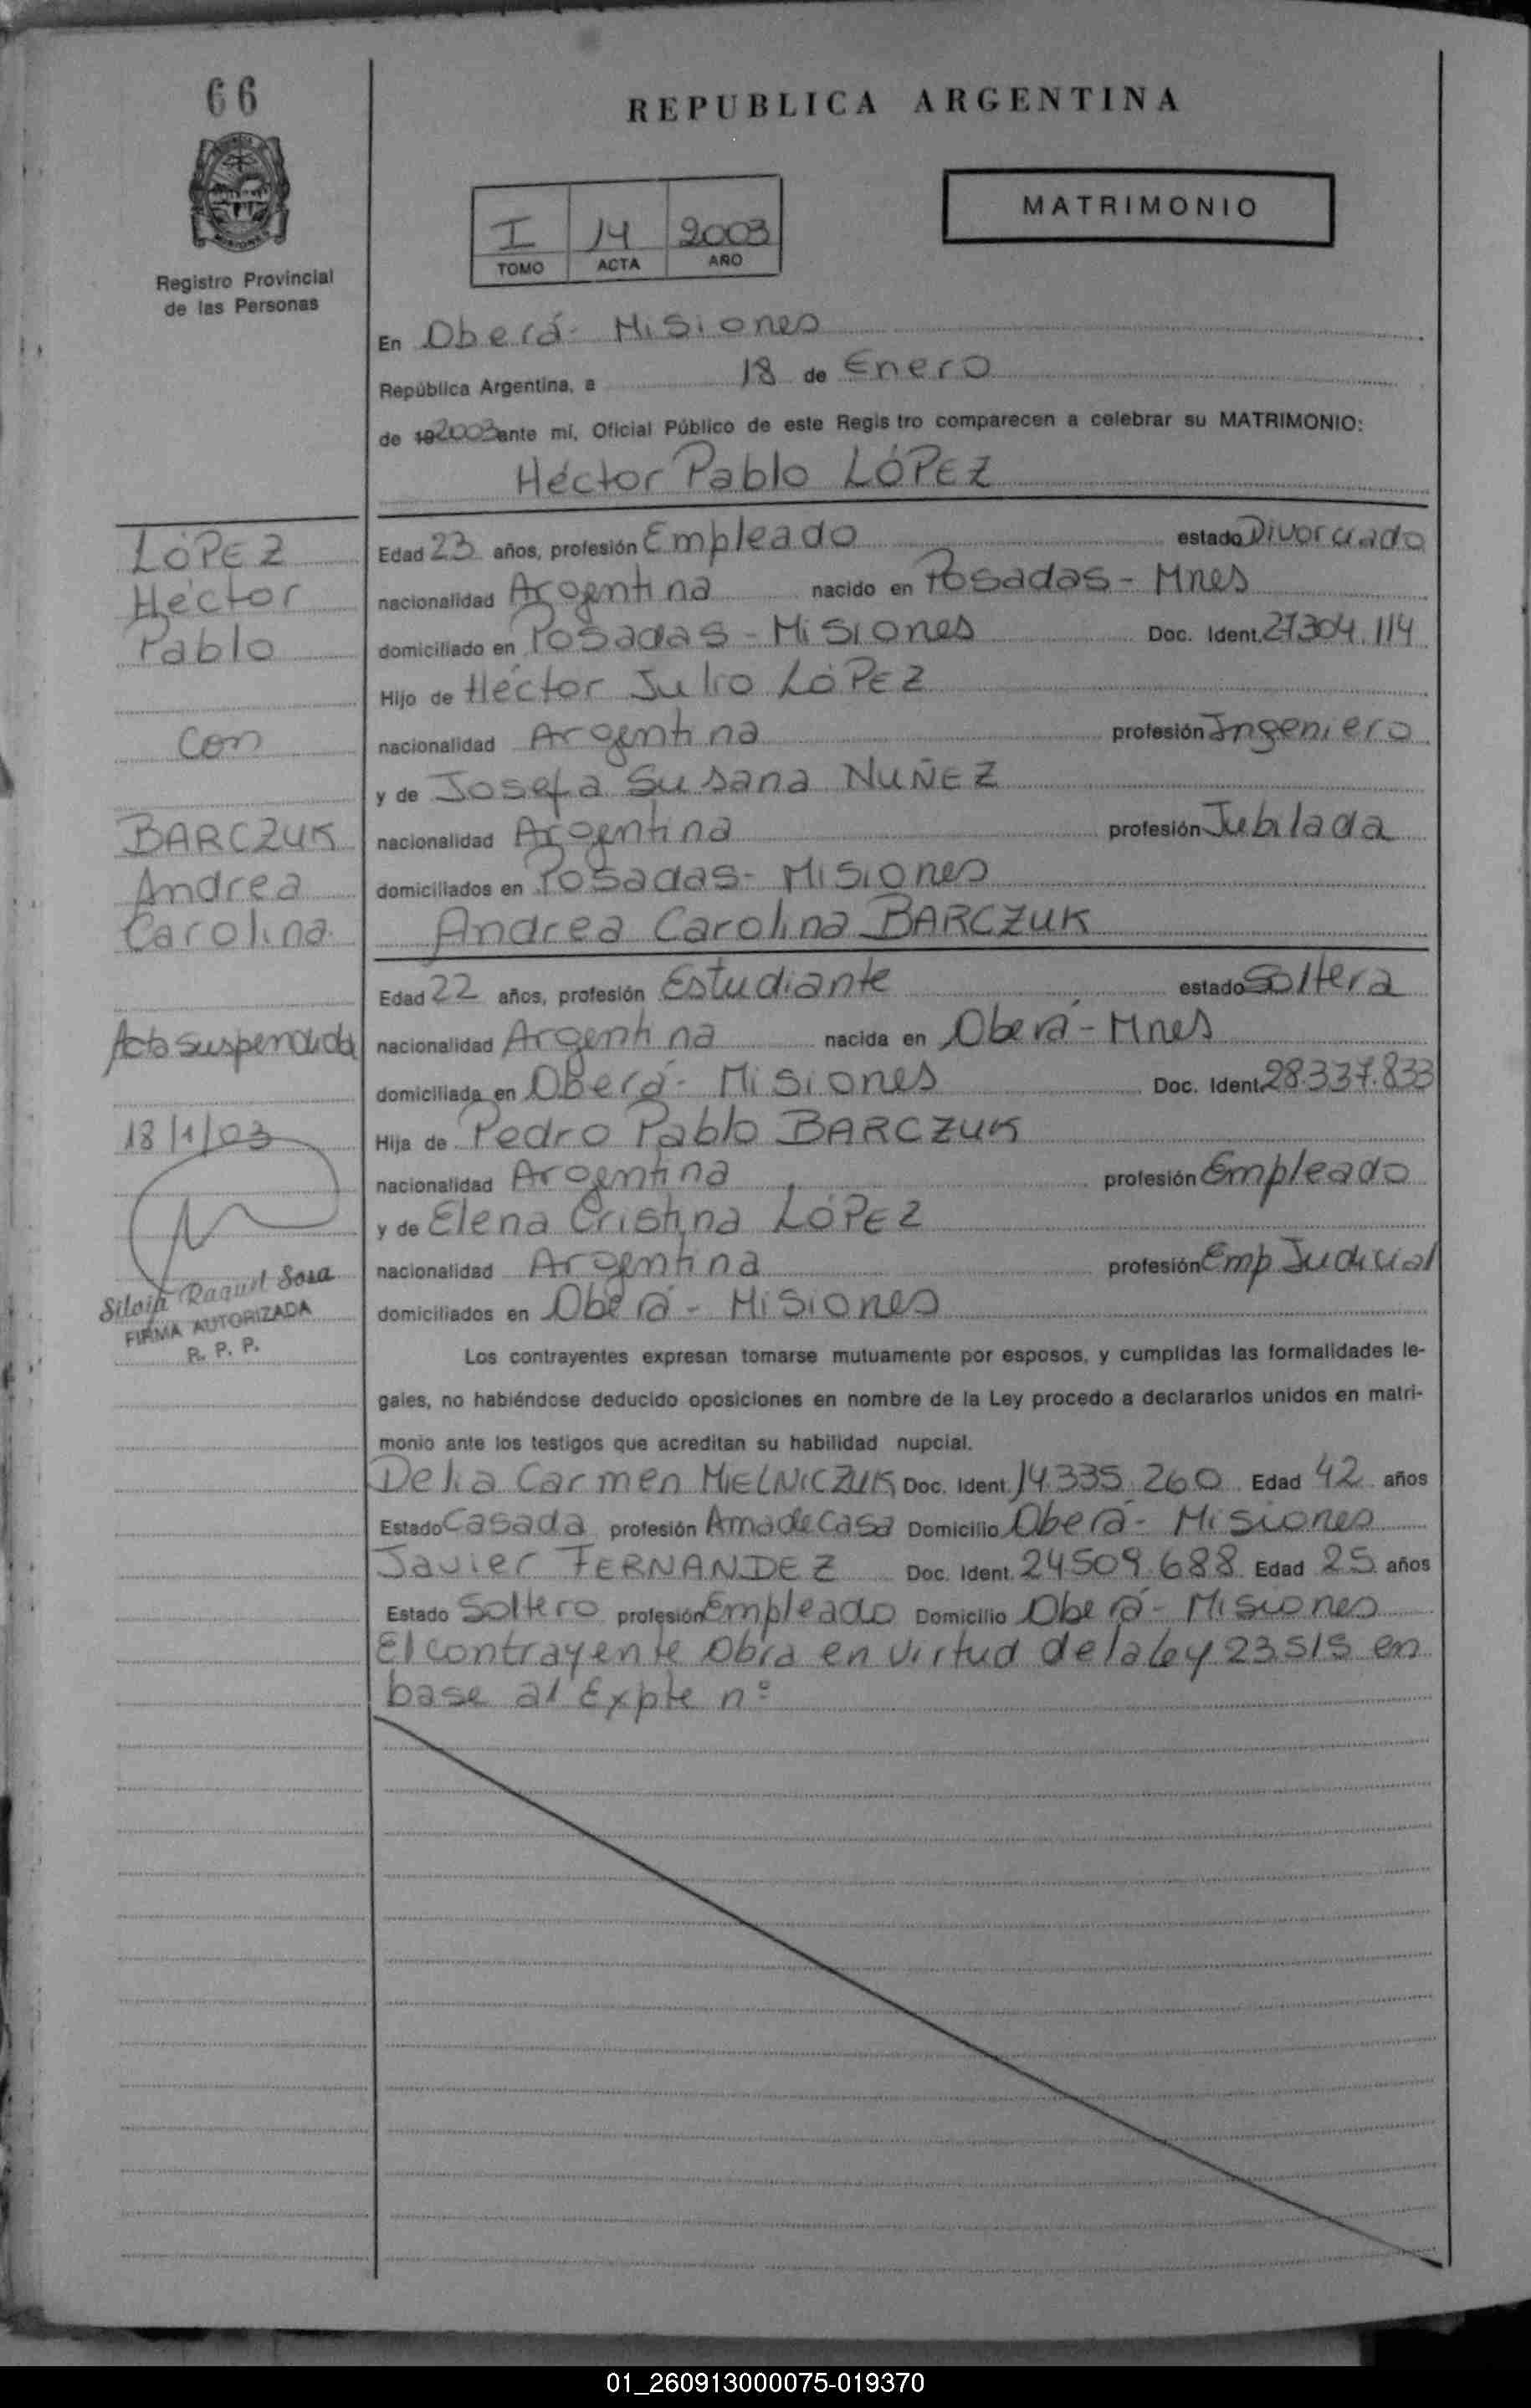 66
REPUBLICA ARGENTINA
MATRIMONIO
I 14 2003
TOMO ACTA AÑO
Registro Provincial
de las Personas
En Oberá - Misiones
República Argentina, a 18 de Enero
de 19 2003 ante mí, Oficial Público de este Regis tro comparecen a celebrar su MATRIMONIO:
Héctor Pablo LÓPEZ
LÓPEZ
Héctor
Pablo
con
BARCZUK
Andrea
Carolina
Acta suspendida
18/1/03
Silvia Raquel Sosa
FIRMA AUTORIZADA
R. P. P.
Edad 23 años, profesión Empleado estado Divorciado
nacionalidad Argentina nacido en Posadas - Mnes
domiciliado en Posadas - Misiones Doc. Ident. 27304.114
Hijo de Héctor Julio LÓPEZ
nacionalidad Argentina profesión Ingeniero
y de Josefa Susana NUÑEZ
nacionalidad Argentina profesión Jubilada
domiciliados en Posadas - Misiones
Andrea Carolina BARCZUK
Edad 22 años, profesión Estudiante estado Soltera
nacionalidad Argentina nacida en Oberá - Mnes
domiciliada en Oberá - Misiones Doc. Ident. 28.337.833
Hija de Pedro Pablo BARCZUK
nacionalidad Argentina profesión Empleado
y de Elena Cristina LÓPEZ
nacionalidad Argentina profesión Emp Judicial
domiciliados en Oberá - Misiones
Los contrayentes expresan tomarse mutuamente por esposos, y cumplidas las formalidades le-
gales, no habiéndose deducido oposiciones en nombre de la Ley procedo a declararlos unidos en matri-
monio ante los testigos que acreditan su habilidad nupcial.
Delia Carmen MIELNICZUK Doc. Ident. 14.335.260 Edad 42 años
Estado Casada profesión Ama de casa Domicilio Oberá - Misiones
Javier FERNANDEZ Doc. Ident. 24509.688 Edad 25 años
Estado Soltero profesión Empleado Domicilio Oberá - Misiones
El contrayente Obra en virtud de la ley 23.515 en
base al Expte nº
01_260913000075-019370